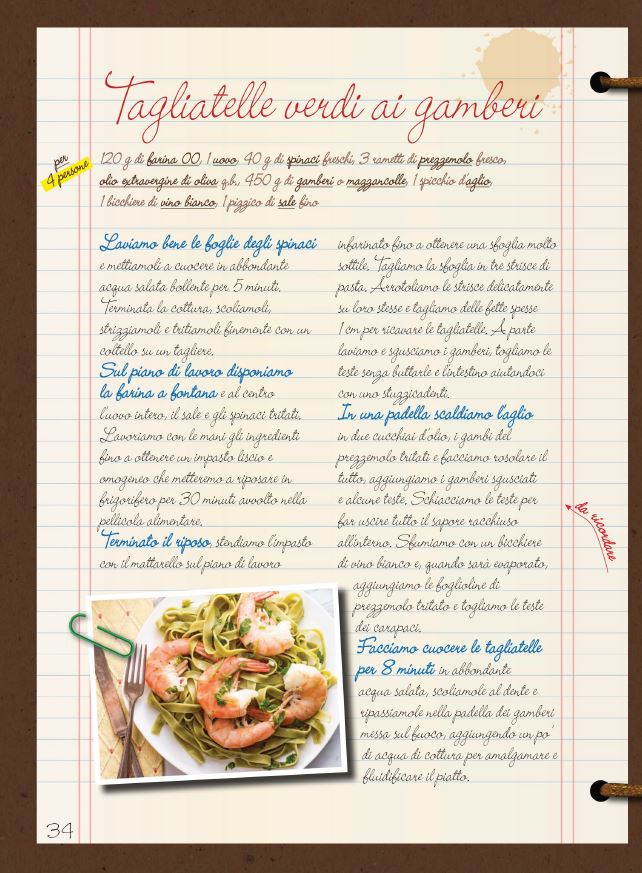 Tagliatelle verdi ai gamberi
per
4 persone
120 g di farina 00, 1 uovo, 40 g di spinaci freschi, 3 rametti di prezzemolo fresco,
olio extravergine di oliva q.b., 450 g di gamberi o mazzancolle, 1 spicchio d'aglio,
1 bicchiere di vino bianco, 1 pizzico di sale fino
Laviamo bene le foglie degli spinaci
e mettiamoli a cuocere in abbondante
acqua salata bollente per 5 minuti.
Terminata la cottura, scoliamoli,
strizziamoli e tritiamoli finemente con un
coltello su un tagliere.
Sul piano di lavoro disponiamo
la farina a fontana e al centro
l'uovo intero, il sale e gli spinaci tritati.
Lavoriamo con le mani gli ingredienti
fino a ottenere un impasto liscio e
omogeneo che metteremo a riposare in
frigorifero per 30 minuti avvolto nella
pellicola alimentare.
Terminato il riposo, stendiamo l'impasto
con il mattarello sul piano di lavoro
infarinato fino a ottenere una sfoglia molto
sottile. Tagliamo la sfoglia in tre strisce di
pasta. Arrotoliamo le strisce delicatamente
su loro stesse e tagliamo delle fette spesse
1 cm per ricavare le tagliatelle. A parte
laviamo e sgusciamo i gamberi, togliamo le
teste senza buttarle e l'intestino aiutandoci
con uno stuzzicadenti.
In una padella scaldiamo l'aglio
in due cucchiai d'olio, i gambi del
prezzemolo tritati e facciamo rosolare il
tutto, aggiungiamo i gamberi sgusciati
e alcune teste. Schiacciamo le teste per
far uscire tutto il sapore racchiuso
all'interno. Sfumiamo con un bicchiere
di vino bianco e, quando sarà evaporato,
aggiungiamo le foglioline di
prezzemolo tritato e togliamo le teste
dei carapaci.
Facciamo cuocere le tagliatelle
per 8 minuti in abbondante
acqua salata, scoliamole al dente e
ripassiamole nella padella dei gamberi
messa sul fuoco, aggiungendo un po'
di acqua di cottura per amalgamare e
fluidificare il piatto.
da ricordare
34